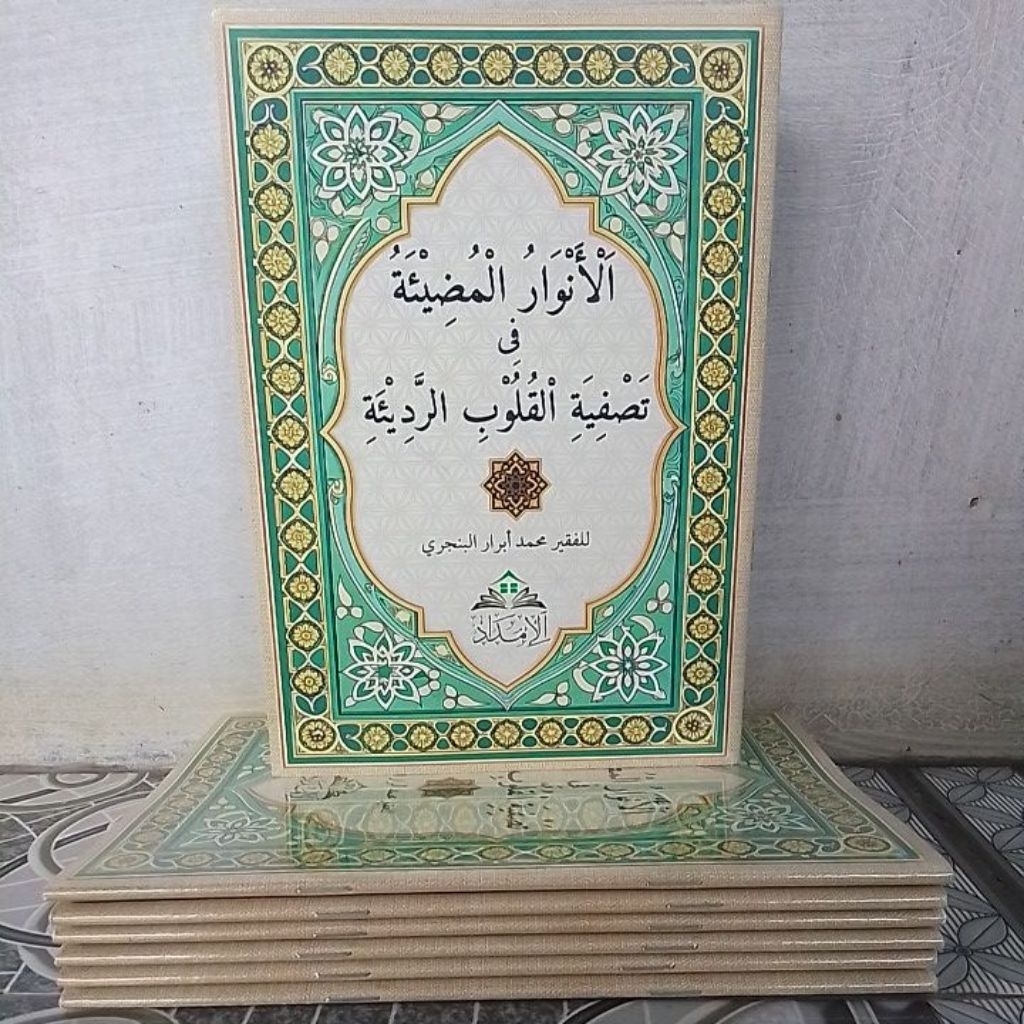 اَلْأَنْوَارُ الْمُضِيْئَةُ
فِى
تَصْفِيَةِ الْقُلُوْبِ الرَّدِيْئَةِ
للفقير محمد أبرار البنجري
الإمداد